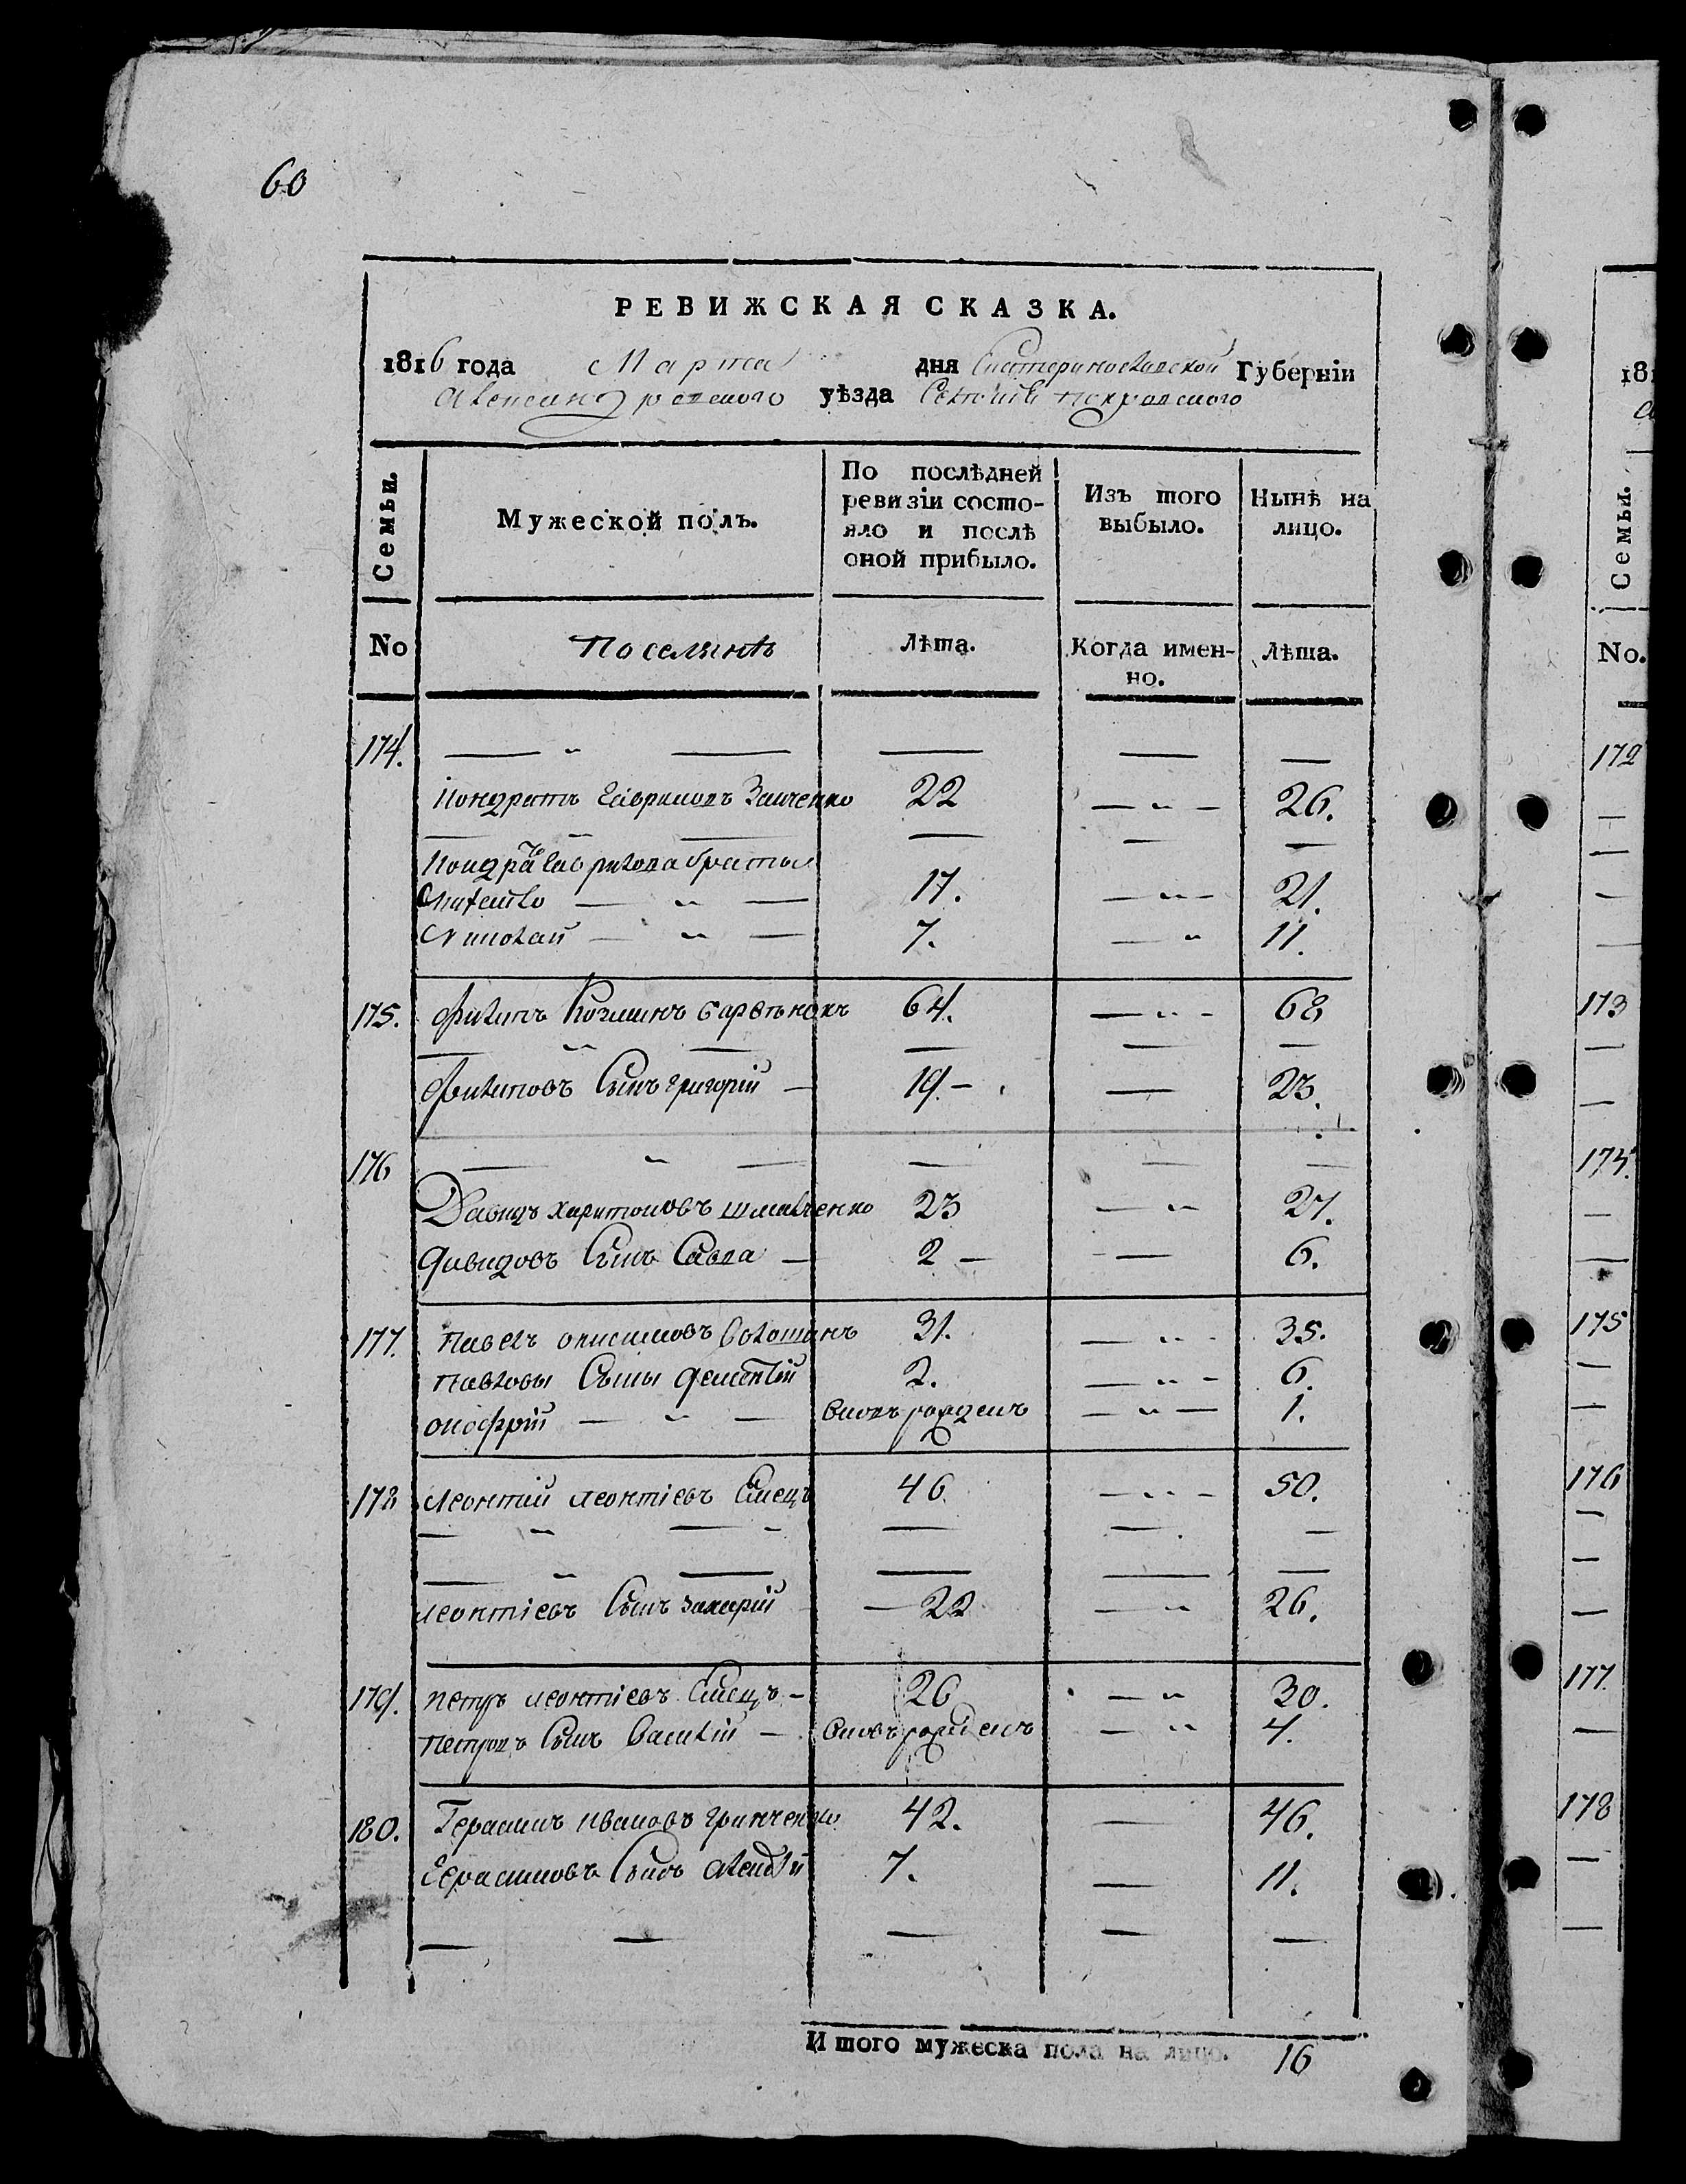 60
РЕВИЖСКАЯ СКАЗКА.
1816 года Марта дня Екатеринославской Губерніи
Александровского уѣзда Селенія Покровского
Семьи. Мужеской полъ. По послѣдней ревизіи состояло и послѣ оной прибыло. Изъ того выбыло. Нынѣ на лицо.
No Поселянѣ Лѣта. Когда именно. Лѣта.
174.
Кондратъ Гавриловъ Заиченко 22 26.
Кондратъ Гаврилова братья
17. 21.
Николай 7. 11.
175. Филипъ 64. 68
Филиповъ Сынъ Григорій 19 23.
176
Давидъ Харитоновъ Шмавченко 23 27.
Давидовъ Сынъ Савва 2 6.
177. Павелъ Онисимовъ Волошинъ 31. 35.
Павловы Сыны Дементій 2. 6.
Онофрій вновь рожденъ 1.
178 Леонтий Леонтіевъ Емецъ 46 50.
Леонтіевъ Сынъ Захарій 22 26.
179. Петръ Леонтіевъ Емецъ 26 30.
Петровъ Сынъ Василій вновь рожденъ 4.
180. Герасимъ Ивановъ Гринченко 42. 46.
Герасимовъ Сынъ 7. 11.
Итого мужеска пола на лицо. 16
181
Семьи.
No.
172
173
174.
175
176
177
178